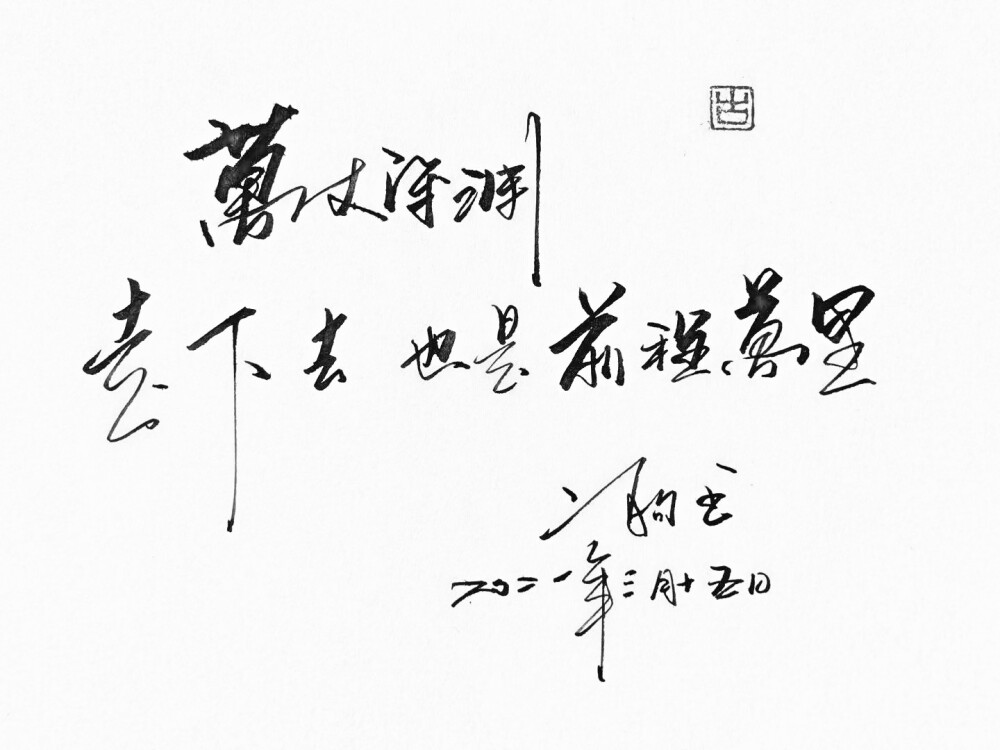 萬丈深渊
走下去 也是 前程萬里
二〇二一年三月十五日